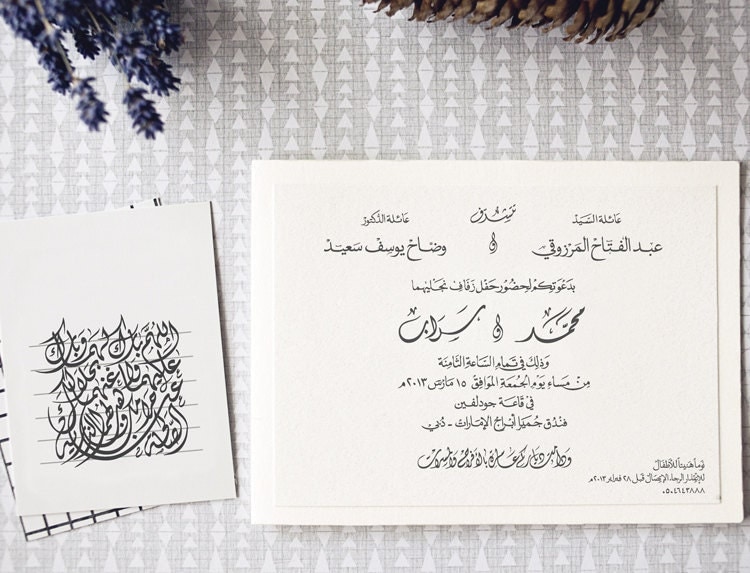 تتشرف
عائلة السيد عائلة الدكتور
عبد الفتاح المرزوقي و وضاح يوسف سعيد
بدعوتكم لحضور حفل زفاف نجليهما
محمد و سراب
وذلك في تمام الساعة الثامنة
من مساء يوم الجمعة الموافق ١٥ مارس ٢٠١٣م
في قاعة جودلفين
فندق جميرا أبراج الإمارات - دبي
ودامت دياركم عامرة بالأفراح والمسرات
نوماً هنيئاً للأطفال
للإعتذار الرجاء الإتصال قبل ٢٨ فبراير ٢٠١٣م
٠٥٠٤٦٤٣٨٨٨
اللهم بارك لهم وبارك